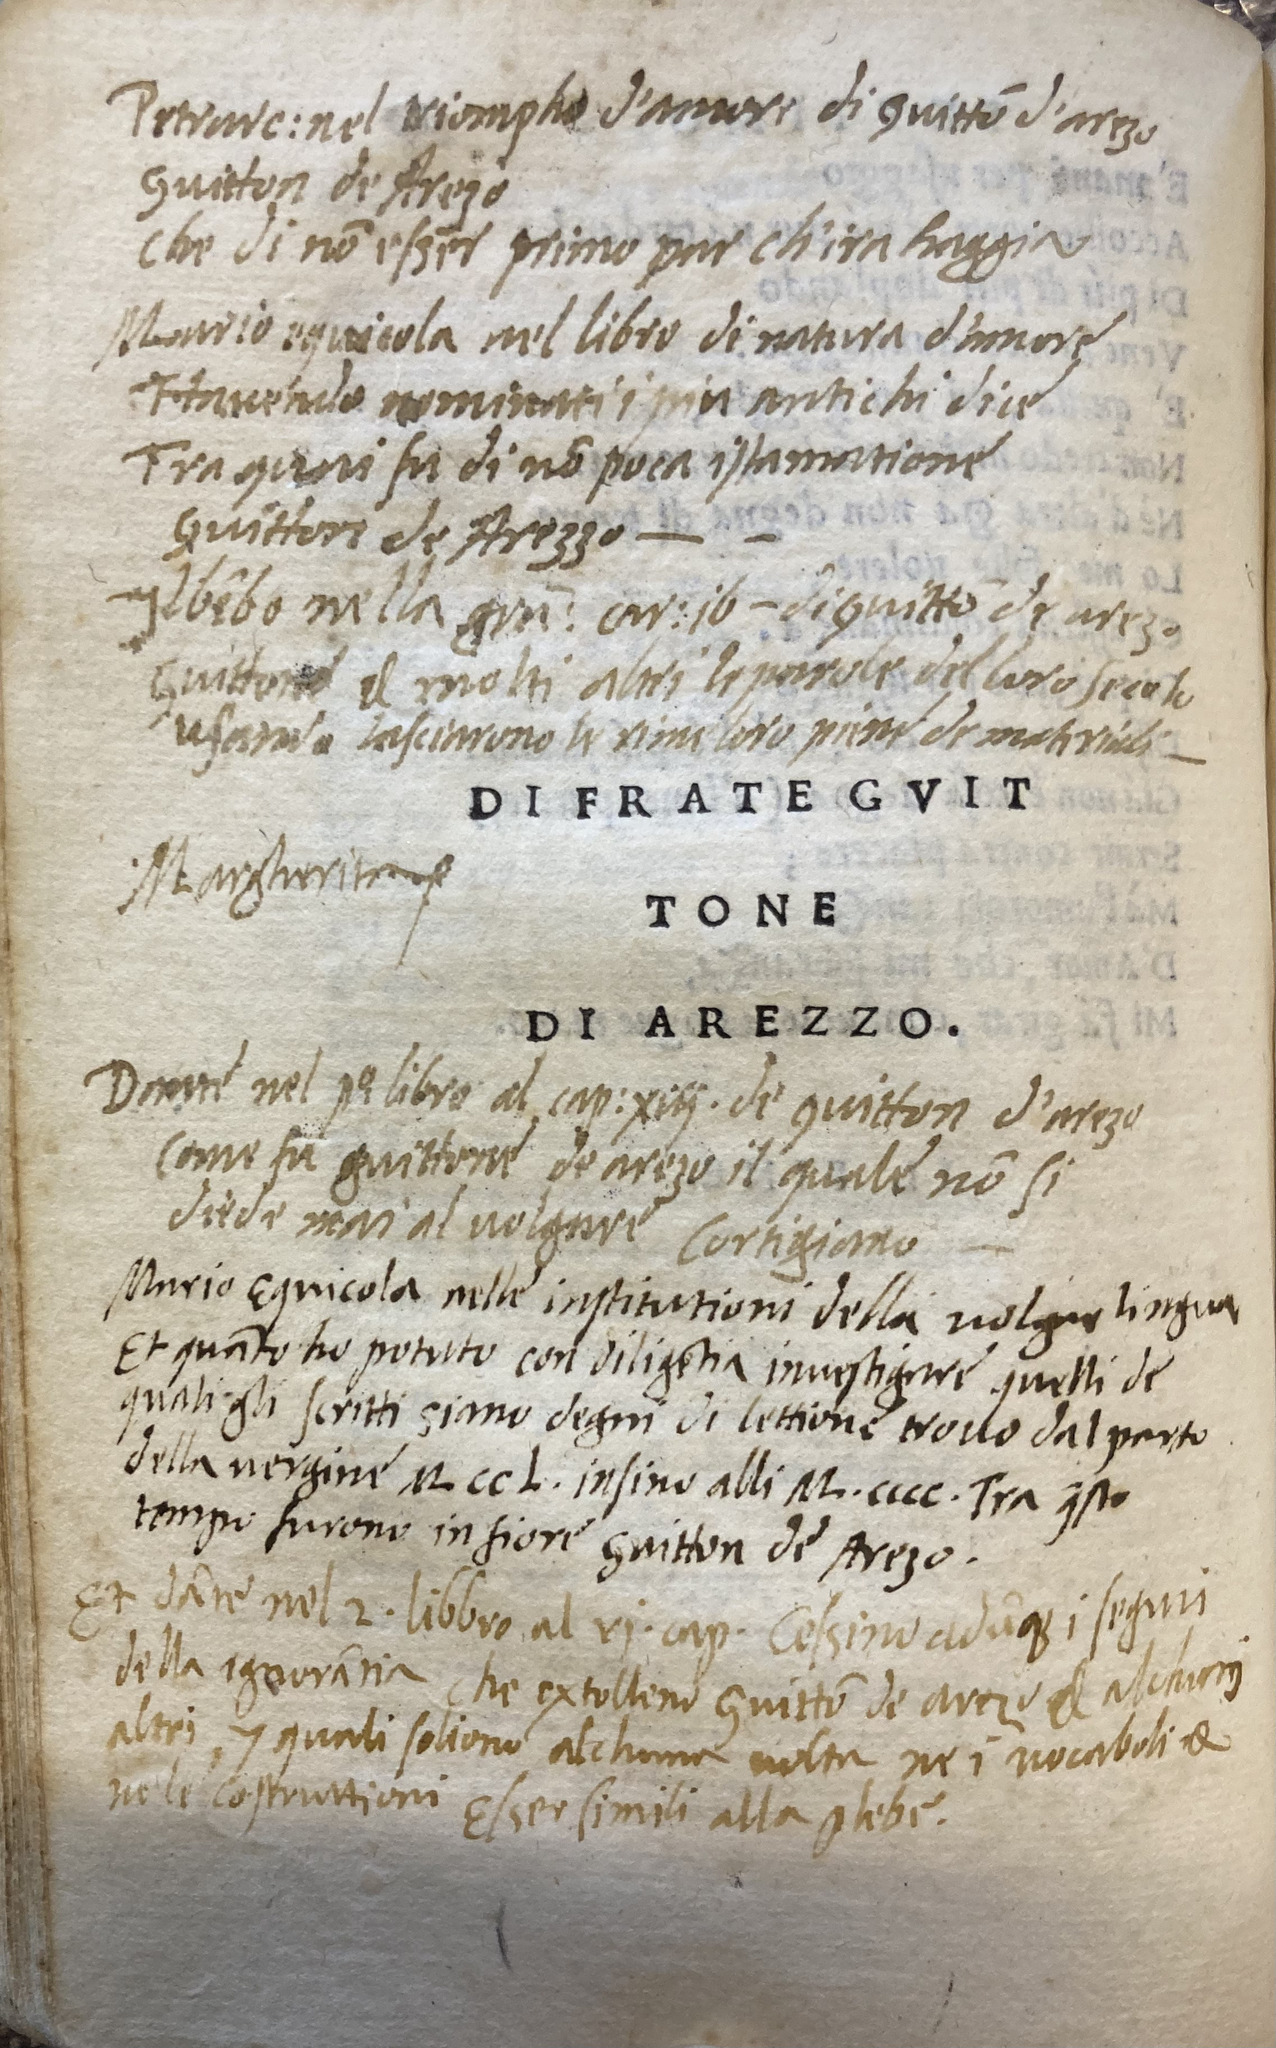 Petrarc: nel triompho d'amore di Guittō d'arezo
Guitton de Arezo
che di nō esser primo par ch'ira haggia
Mario equicola nel libro di natura d'amore
Havendo nominati i piu antichi dice
Tra quali fu di nō poca istamatione
Guitton de Arezzo — –
Il bēbo nella grā: car: 16 – di guittō de arezo
Guittone & molti altri le parole del loro secolo
usando lasciarono le rime loro piene de materiali —
DI FRATE GVIT
Margherita
TONE
DI AREZZO.
Dante nel pº libro al cap: xiij. de guitton d'arezo
come fu guittone de arezo il quale nō si
diede mai al volgare Cortigiano —
Mario Equicola nelle institutioni della volgar lingua
Et quāto ho potuto con diligētia investigare quelli de
quali gli scritti siano degni di lettione trovo dal parto
della vergine M CC L. insino alli M. cccc. Tra q̄sto
tempo furono in fiore Guitton de Arezo.
Et dāte nel 2. libbro al vj. cap. Cessino adūq; i seguaci
della ignorātia che extolleno Guittō de arezo & alchuni
altri, i quali soliono alchuna volta ne i vocaboli &
ne le costruttioni Esser simili alla plebe.